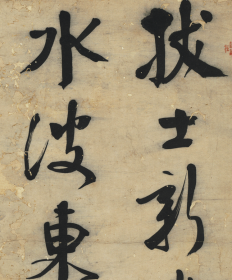 拔士新
水波東